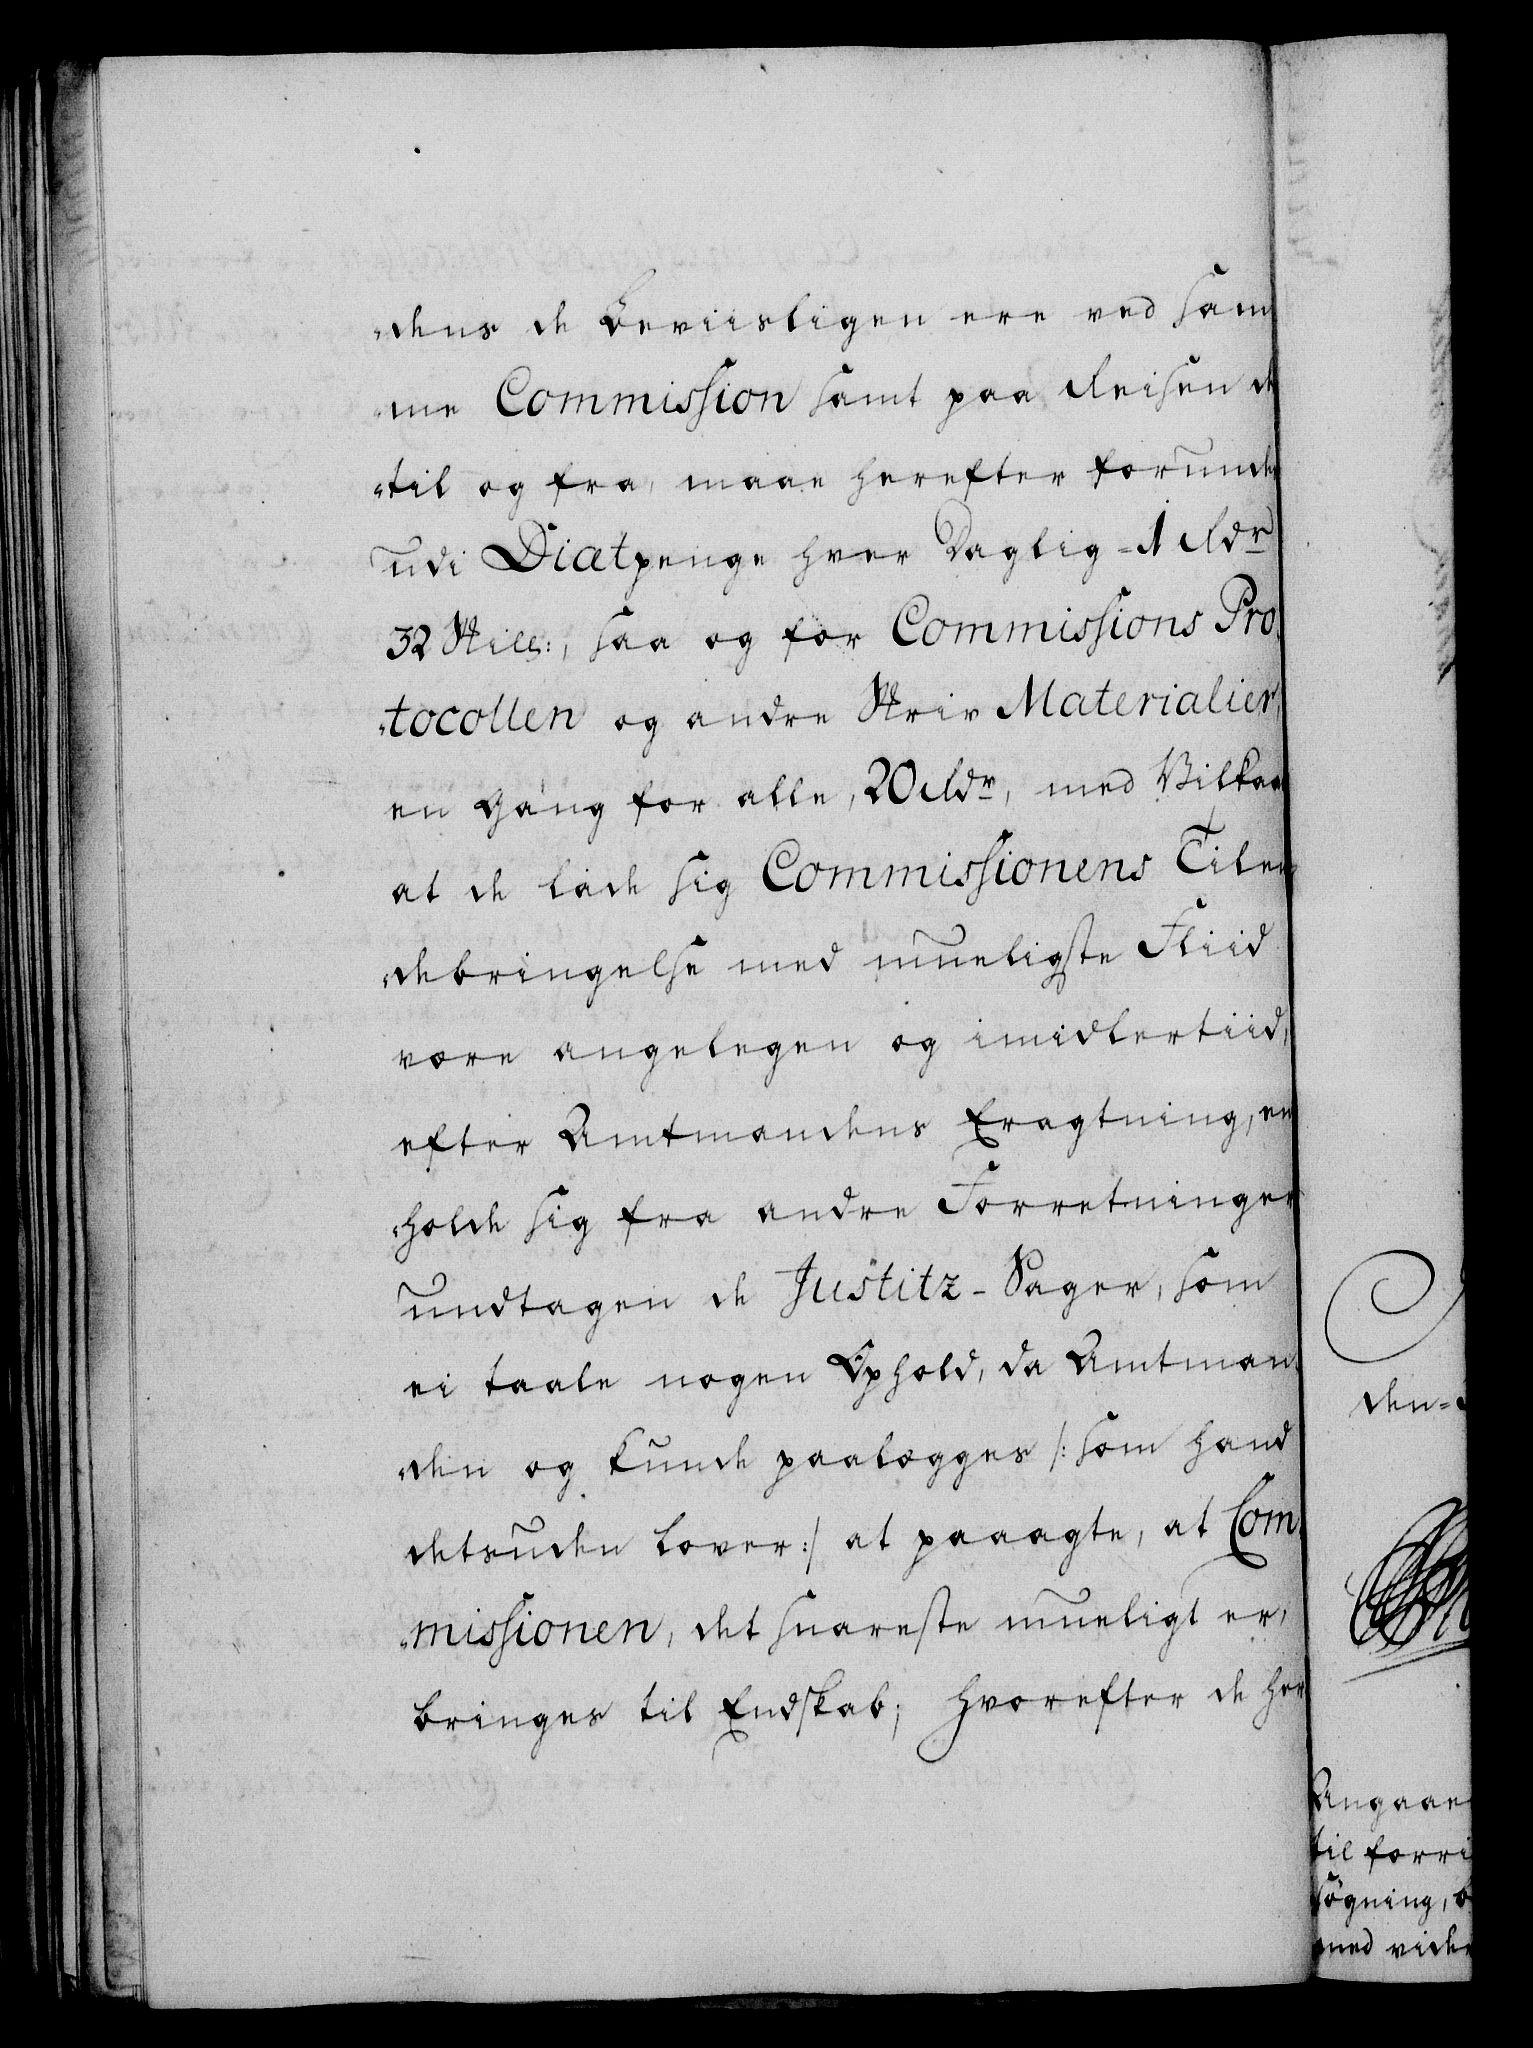 „dens de beviisligen ere ved sam
„me Commission samt paa Reisen der
„til og fra, maae herefter forundes
udi Diætpenge hver Daglig - 1 Rdr
32 Skill:, saa og for Commissions Pro„
„tocollen og andre Skriv Materialier,
en Gang for alle, 20 Rdr, med Vilkaar
at de lade sig Commissionens Tilen„
„debringelse med mueligste Fliid
være angelegen og imidlertiid,
efter Amtmandens Eragtning, ent
„holde sig fra andre Forretninger
undtagen de Justitz-Sager, som
ei taale nogen Ophold, da Amtman„
„den og kunde paalægges /: som hand
detsuden lover :/ at paaagte, at Com„
„missionen, det snareste mueligt er,
bringes til Endskab; hvorefter de her
den-
Angaae
til forri
søgning, 
med vide